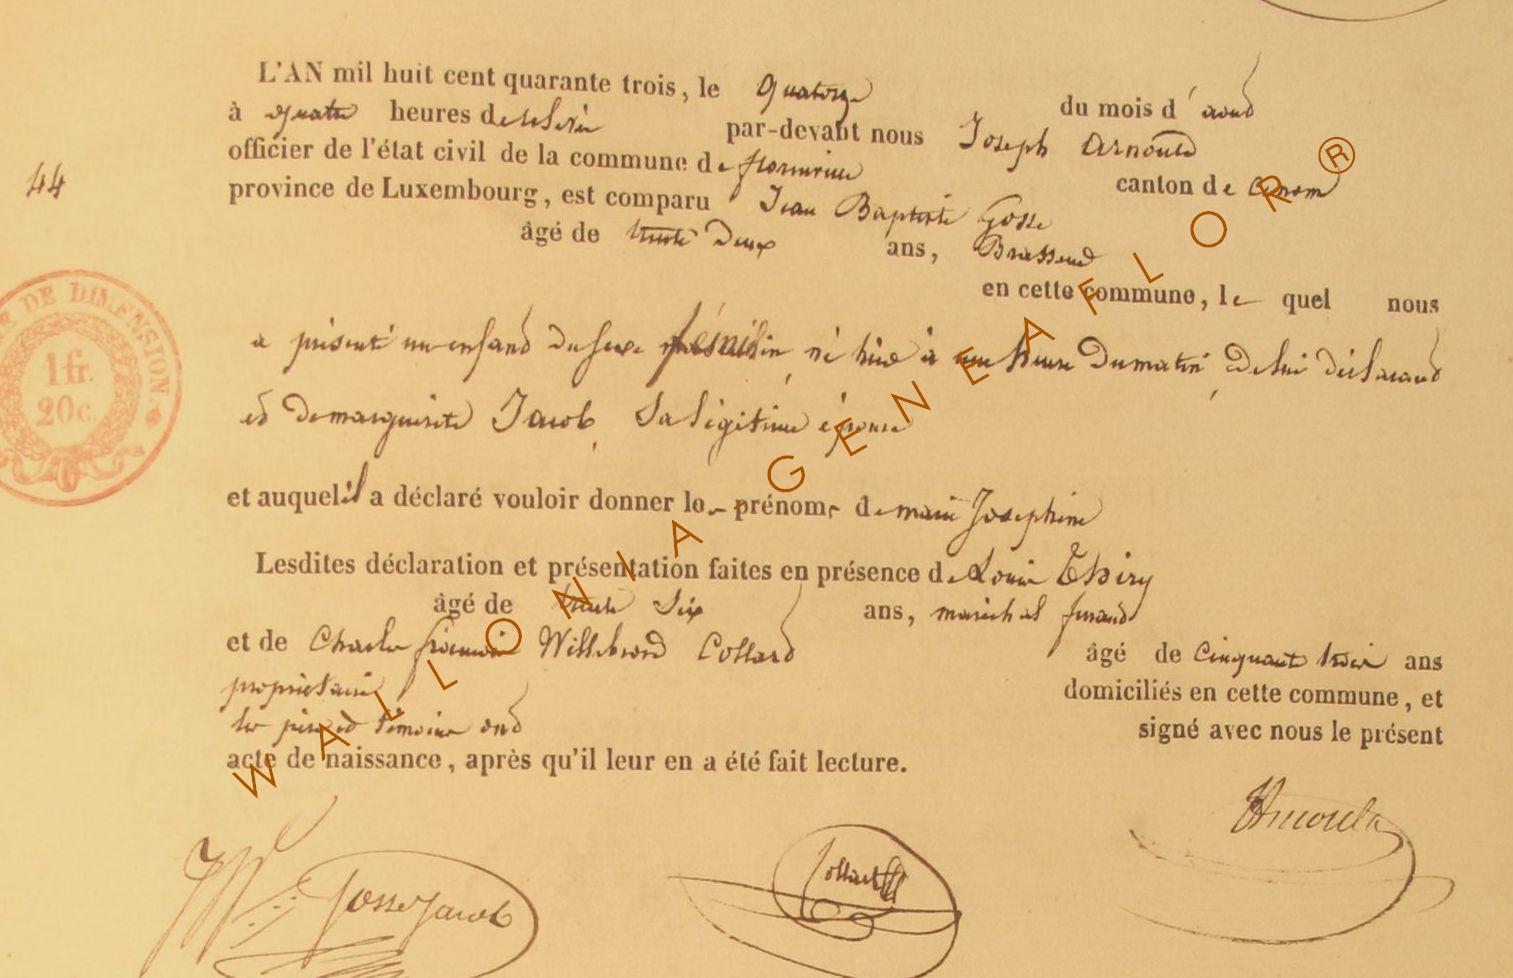 L'AN mil huit cent quarante trois, le quatorze du mois d'aout
à quatre heures de relevée par-devant nous Joseph Arnould
officier de l'état civil de la commune de florenville canton de
44
province de Luxembourg, est comparu Jean Baptiste Gosse
âgé de trente Deux ans, Brasseur
en cette commune, le quel nous
a présenté un enfant du sexe féminin, né hier à une heure du matin, de lui déclarant
et de marguerite Jacob, Sa légitime épouse
et auquel il a déclaré vouloir donner les prénoms de marie Josephine
Lesdites déclaration et présentation faites en présence de Louis Thiry
âgé de trente Six ans, maréchal ferrant
et de Charles Willebrord Collard âgé de cinquante trois ans
propriétaire domiciliés en cette commune, et
les père et témoins ont signé avec nous le présent
acte de naissance, après qu'il leur en a été fait lecture.
DE DIMENSION
1 fr.
20c.
Gosse Jacob
Collard
Arnould
WALLONIA GENEAFLOR ®